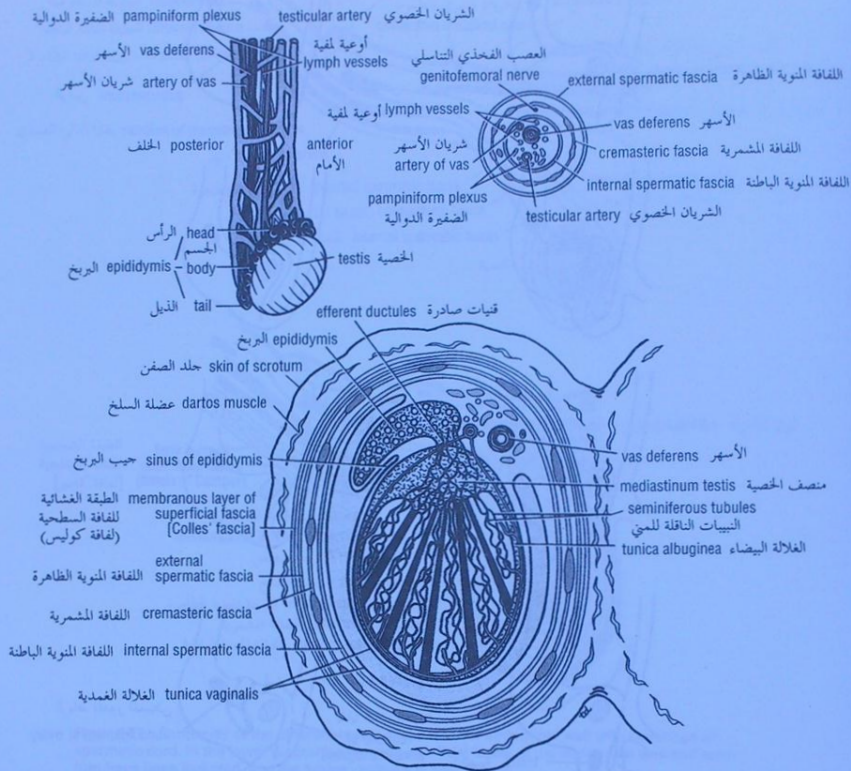 الضفيرة الدوالية pampiniform plexus
testicular artery الشريان الخصوي
الأسهر vas deferens
أوعية لمفية
lymph vessels
شريان الأسهر artery of vas
الخلف posterior
anterior
الأمام
الرأس head
الجسم
البربخ epididymis
body
الذيل tail
testis الخصية
العصب الفخذي التناسلي
genitofemoral nerve
external spermatic fascia اللفافة المنوية الظاهرة
أوعية لمفية lymph vessels
vas deferens الأسهر
شريان الأسهر
artery of vas
cremasteric fascia اللفافة المشمرية
internal spermatic fascia اللفافة المنوية الباطنة
pampiniform plexus
الضفيرة الدوالية
testicular artery الشريان الخصوي
efferent ductules قنيات صادرة
البربخ epididymis
جلد الصفن skin of scrotum
عضلة السلخ dartos muscle
جيب البربخ sinus of epididymis
الطبقة الغشائية membranous layer of
للفافة السطحية superficial fascia
(لفافة كوليس) [Colles' fascia]
external
اللفافة المنوية الظاهرة spermatic fascia
اللفافة المشمرية cremasteric fascia
اللفافة المنوية الباطنة internal spermatic fascia
الغلالة الغمدية tunica vaginalis
vas deferens الأسهر
mediastinum testis منصف الخصية
seminiferous tubules
النبيبات الناقلة للمني
tunica albuginea الغلالة البيضاء